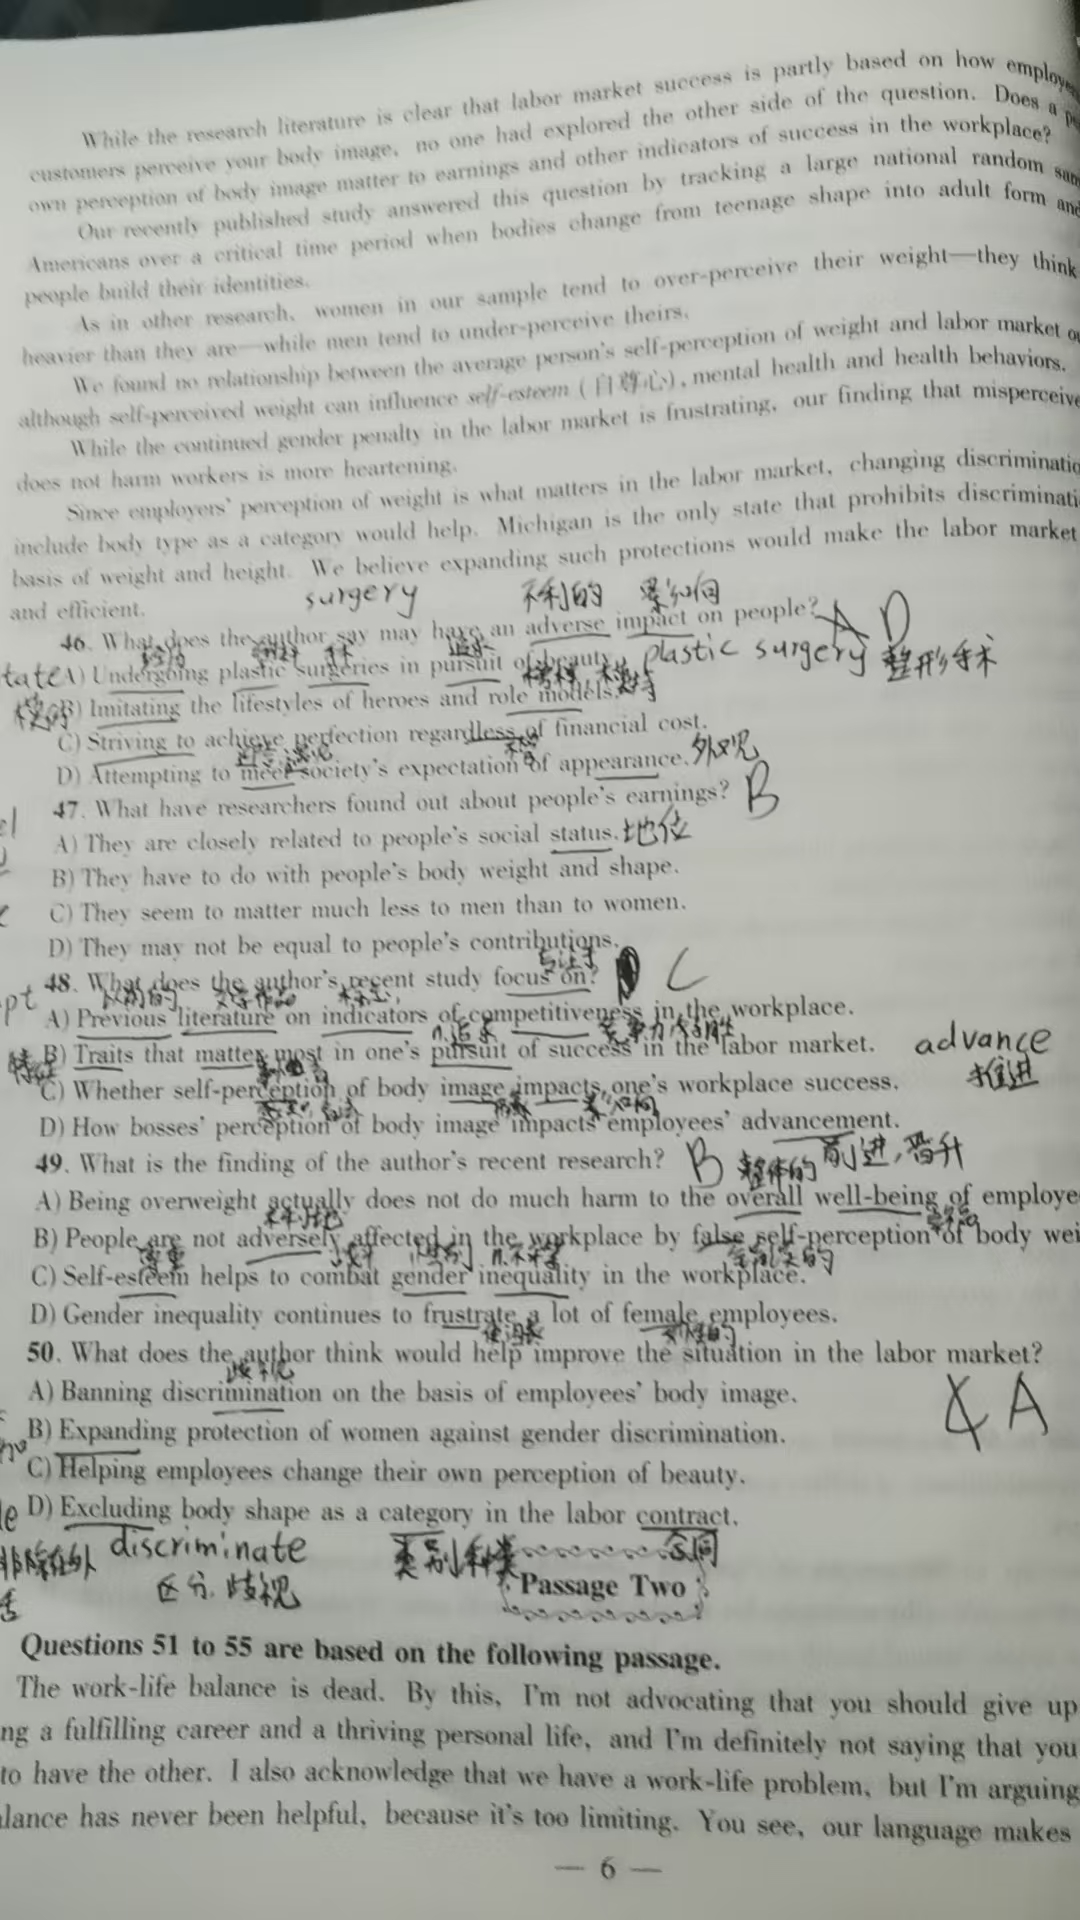 While the research literature is clear that labor market success is partly based on how
customers perceive your body image, no one had explored the other side of the question. Does a
own perception of body image matter to earnings and other indicators of success in the workplace?
Our recently published study answered this question by tracking a large national random
Americans over a critical time period when bodies change from teenage shape into adult form and
people build their identities.
As in other research, women in our sample tend to over-perceive their weight—they think
heavier than they are—while men tend to under-perceive theirs.
We found no relationship between the average person's self-perception of weight and labor market
although self-perceived weight can influence self-esteem (自尊心), mental health and health behaviors.
While the continued gender penalty in the labor market is frustrating, our finding that
does not harm workers is more heartening.
Since employers' perception of weight is what matters in the labor market, changing
include body type as a category would help. Michigan is the only state that prohibits
basis of weight and height. We believe expanding such protections would make the labor market
and efficient.
surgery 不利的 影响
46. What does the author say may have an adverse impact on people? A D
A) Undergoing plastic surgeries in pursuit of beauty. plastic surgery 整形手术
B) Imitating the lifestyles of heroes and role models.
C) Striving to achieve perfection regardless of financial cost.
D) Attempting to meet society's expectation of appearance. 外观
47. What have researchers found out about people's earnings? B
A) They are closely related to people's social status. 地位
B) They have to do with people's body weight and shape.
C) They seem to matter much less to men than to women.
D) They may not be equal to people's contributions.
48. What does the author's recent study focus on? C
以前的
A) Previous literature on indicators of competitiveness in the workplace.
特征 B) Traits that matter most in one's pursuit of success in the labor market. advance
C) Whether self-perception of body image impacts one's workplace success. 推进
D) How bosses' perception of body image impacts employees' advancement.
49. What is the finding of the author's recent research? B 整体的 前进,晋升
A) Being overweight actually does not do much harm to the overall well-being of
B) People are not adversely affected in the workplace by false self-perception of body
C) Self-esteem helps to combat gender inequality in the workplace.
D) Gender inequality continues to frustrate a lot of female employees.
50. What does the author think would help improve the situation in the labor market?
A) Banning discrimination on the basis of employees' body image. A
B) Expanding protection of women against gender discrimination.
C) Helping employees change their own perception of beauty.
D) Excluding body shape as a category in the labor contract.
discriminate 类别 种类 合同
区分, 歧视
Passage Two
Questions 51 to 55 are based on the following passage.
The work-life balance is dead. By this, I'm not advocating that you should give up
a fulfilling career and a thriving personal life, and I'm definitely not saying that you
to have the other. I also acknowledge that we have a work-life problem, but I'm arguing
has never been helpful, because it's too limiting. You see, our language makes
— 6 —